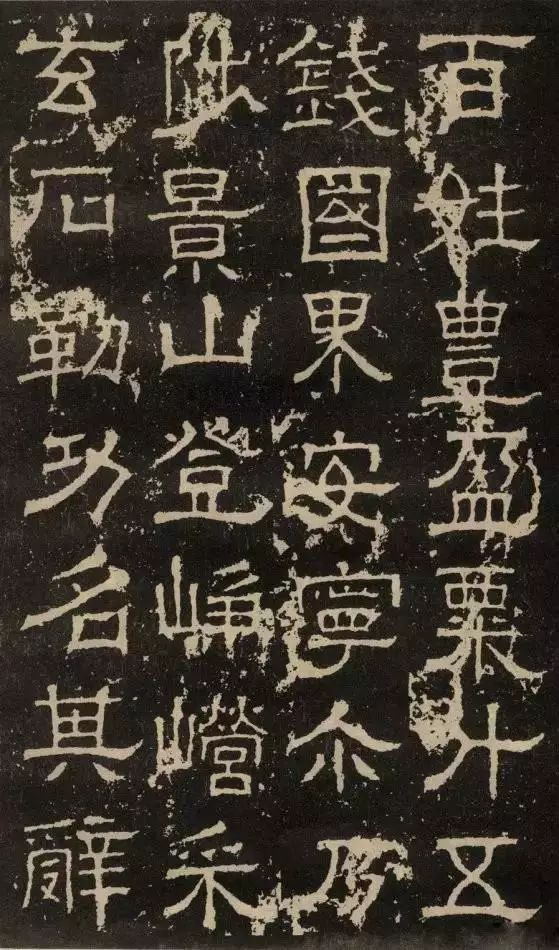 百姓豐盈粟升五
錢國界安寧尒乃
陟景山登崢嶸采
玄石勒功名其辭